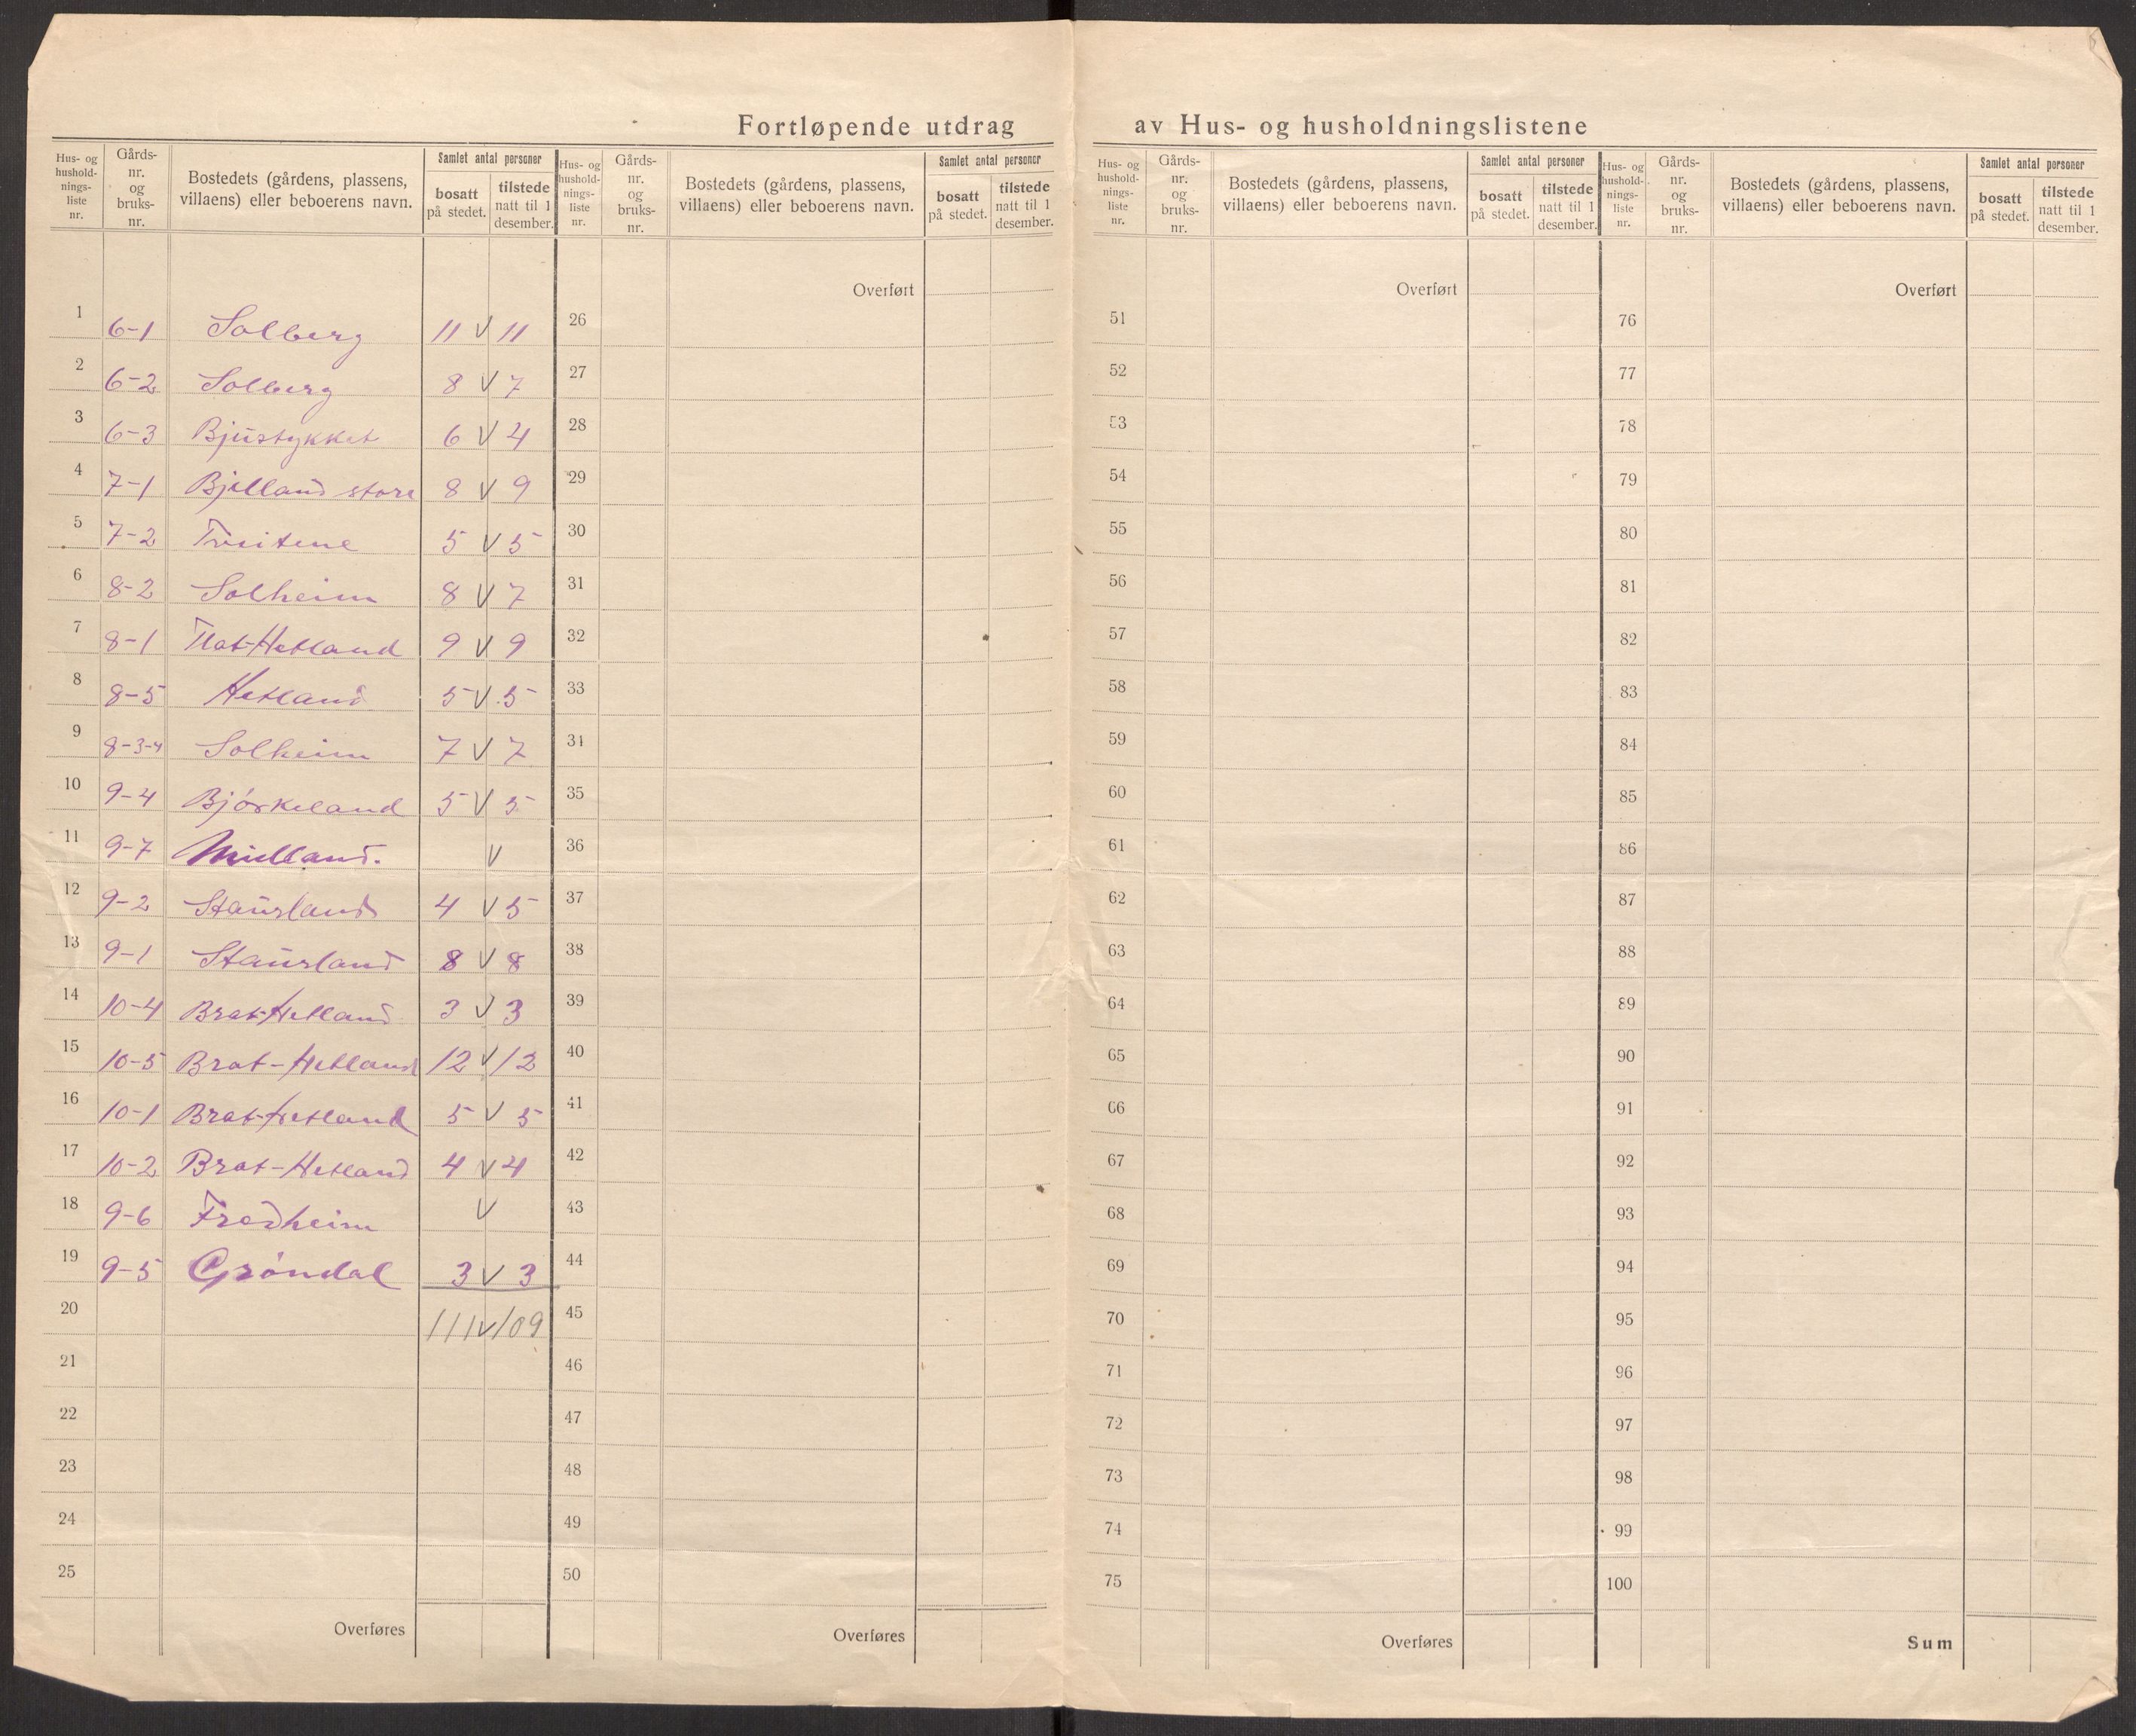 Fortløpende utdrag av Hus- og husholdningslistene
Hus- og hushold-nings-liste nr. Gårds-nr. og bruks-nr. Bostedets (gårdens, plassens, villaens) eller beboerens navn. Samlet antal personer bosatt på stedet. tilstede natt til 1 desember.
1 6-1 Solberg 11 V 11
2 6-2 Solberg 8 V 7
3 6-3 Bjustykket 6 V 4
4 7-1 Bjelland store 8 V 9
5 7-2 Tveitene 5 V 5
6 8-2 Solheim 8 V 7
7 8-1 Flat-Hetland 9 V 9
8 8-5 Hetland 5 V 5
9 8-3-4 Solheim 7 V 7
10 9-4 Björkeland 5 V 5
11 9-7 Midland. V
12 9-2 Staurland 4 V 5
13 9-1 Staurland 8 V 8
14 10-4 Brat-Hetland 3 V 3
15 10-5 Brat-Hetland 12 V 12
16 10-1 Brat-Hetland 5 V 5
17 10-2 Brat-Hetland 4 V 4
18 9-6 Fredheim V
19 9-5 Gröndal 3 V 3
20 111 V 109
21
22
23
24
25
Overføres
Hus- og hushold-nings-liste nr. Gårds-nr. og bruks-nr. Bostedets (gårdens, plassens, villaens) eller beboerens navn. Samlet antal personer bosatt på stedet. tilstede natt til 1 desember.
Overført
26
27
28
29
30
31
32
33
34
35
36
37
38
39
40
41
42
43
44
45
46
47
48
49
50
Overføres
Hus- og hushold-nings-liste nr. Gårds-nr. og bruks-nr. Bostedets (gårdens, plassens, villaens) eller beboerens navn. Samlet antal personer bosatt på stedet. tilstede natt til 1 desember.
Overført
51
52
53
54
55
56
57
58
59
60
61
62
63
64
65
66
67
68
69
70
71
72
73
74
75
Overføres
Hus- og hushold-nings-liste nr. Gårds-nr. og bruks-nr. Bostedets (gårdens, plassens, villaens) eller beboerens navn. Samlet antal personer bosatt på stedet. tilstede natt til 1 desember.
Overført
76
77
78
79
80
81
82
83
84
85
86
87
88
89
90
91
92
93
94
95
96
97
98
99
100
Sum